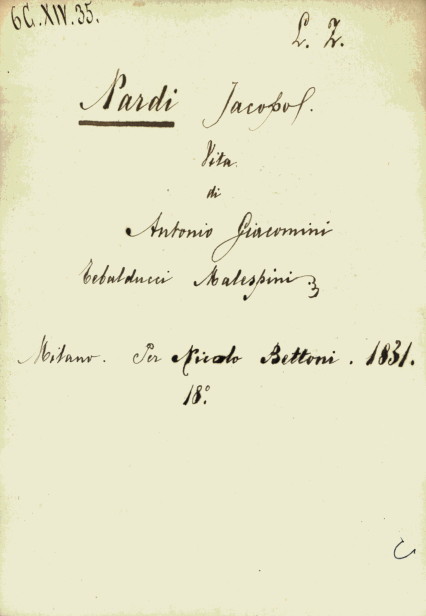 6C.XIV.35.
L. Z.
Nardi Jacopo.
Vita
di
Antonio Giacomini
Tebalducci Malespini
Milano. Per Nicolo Bettoni. 1831.
18º